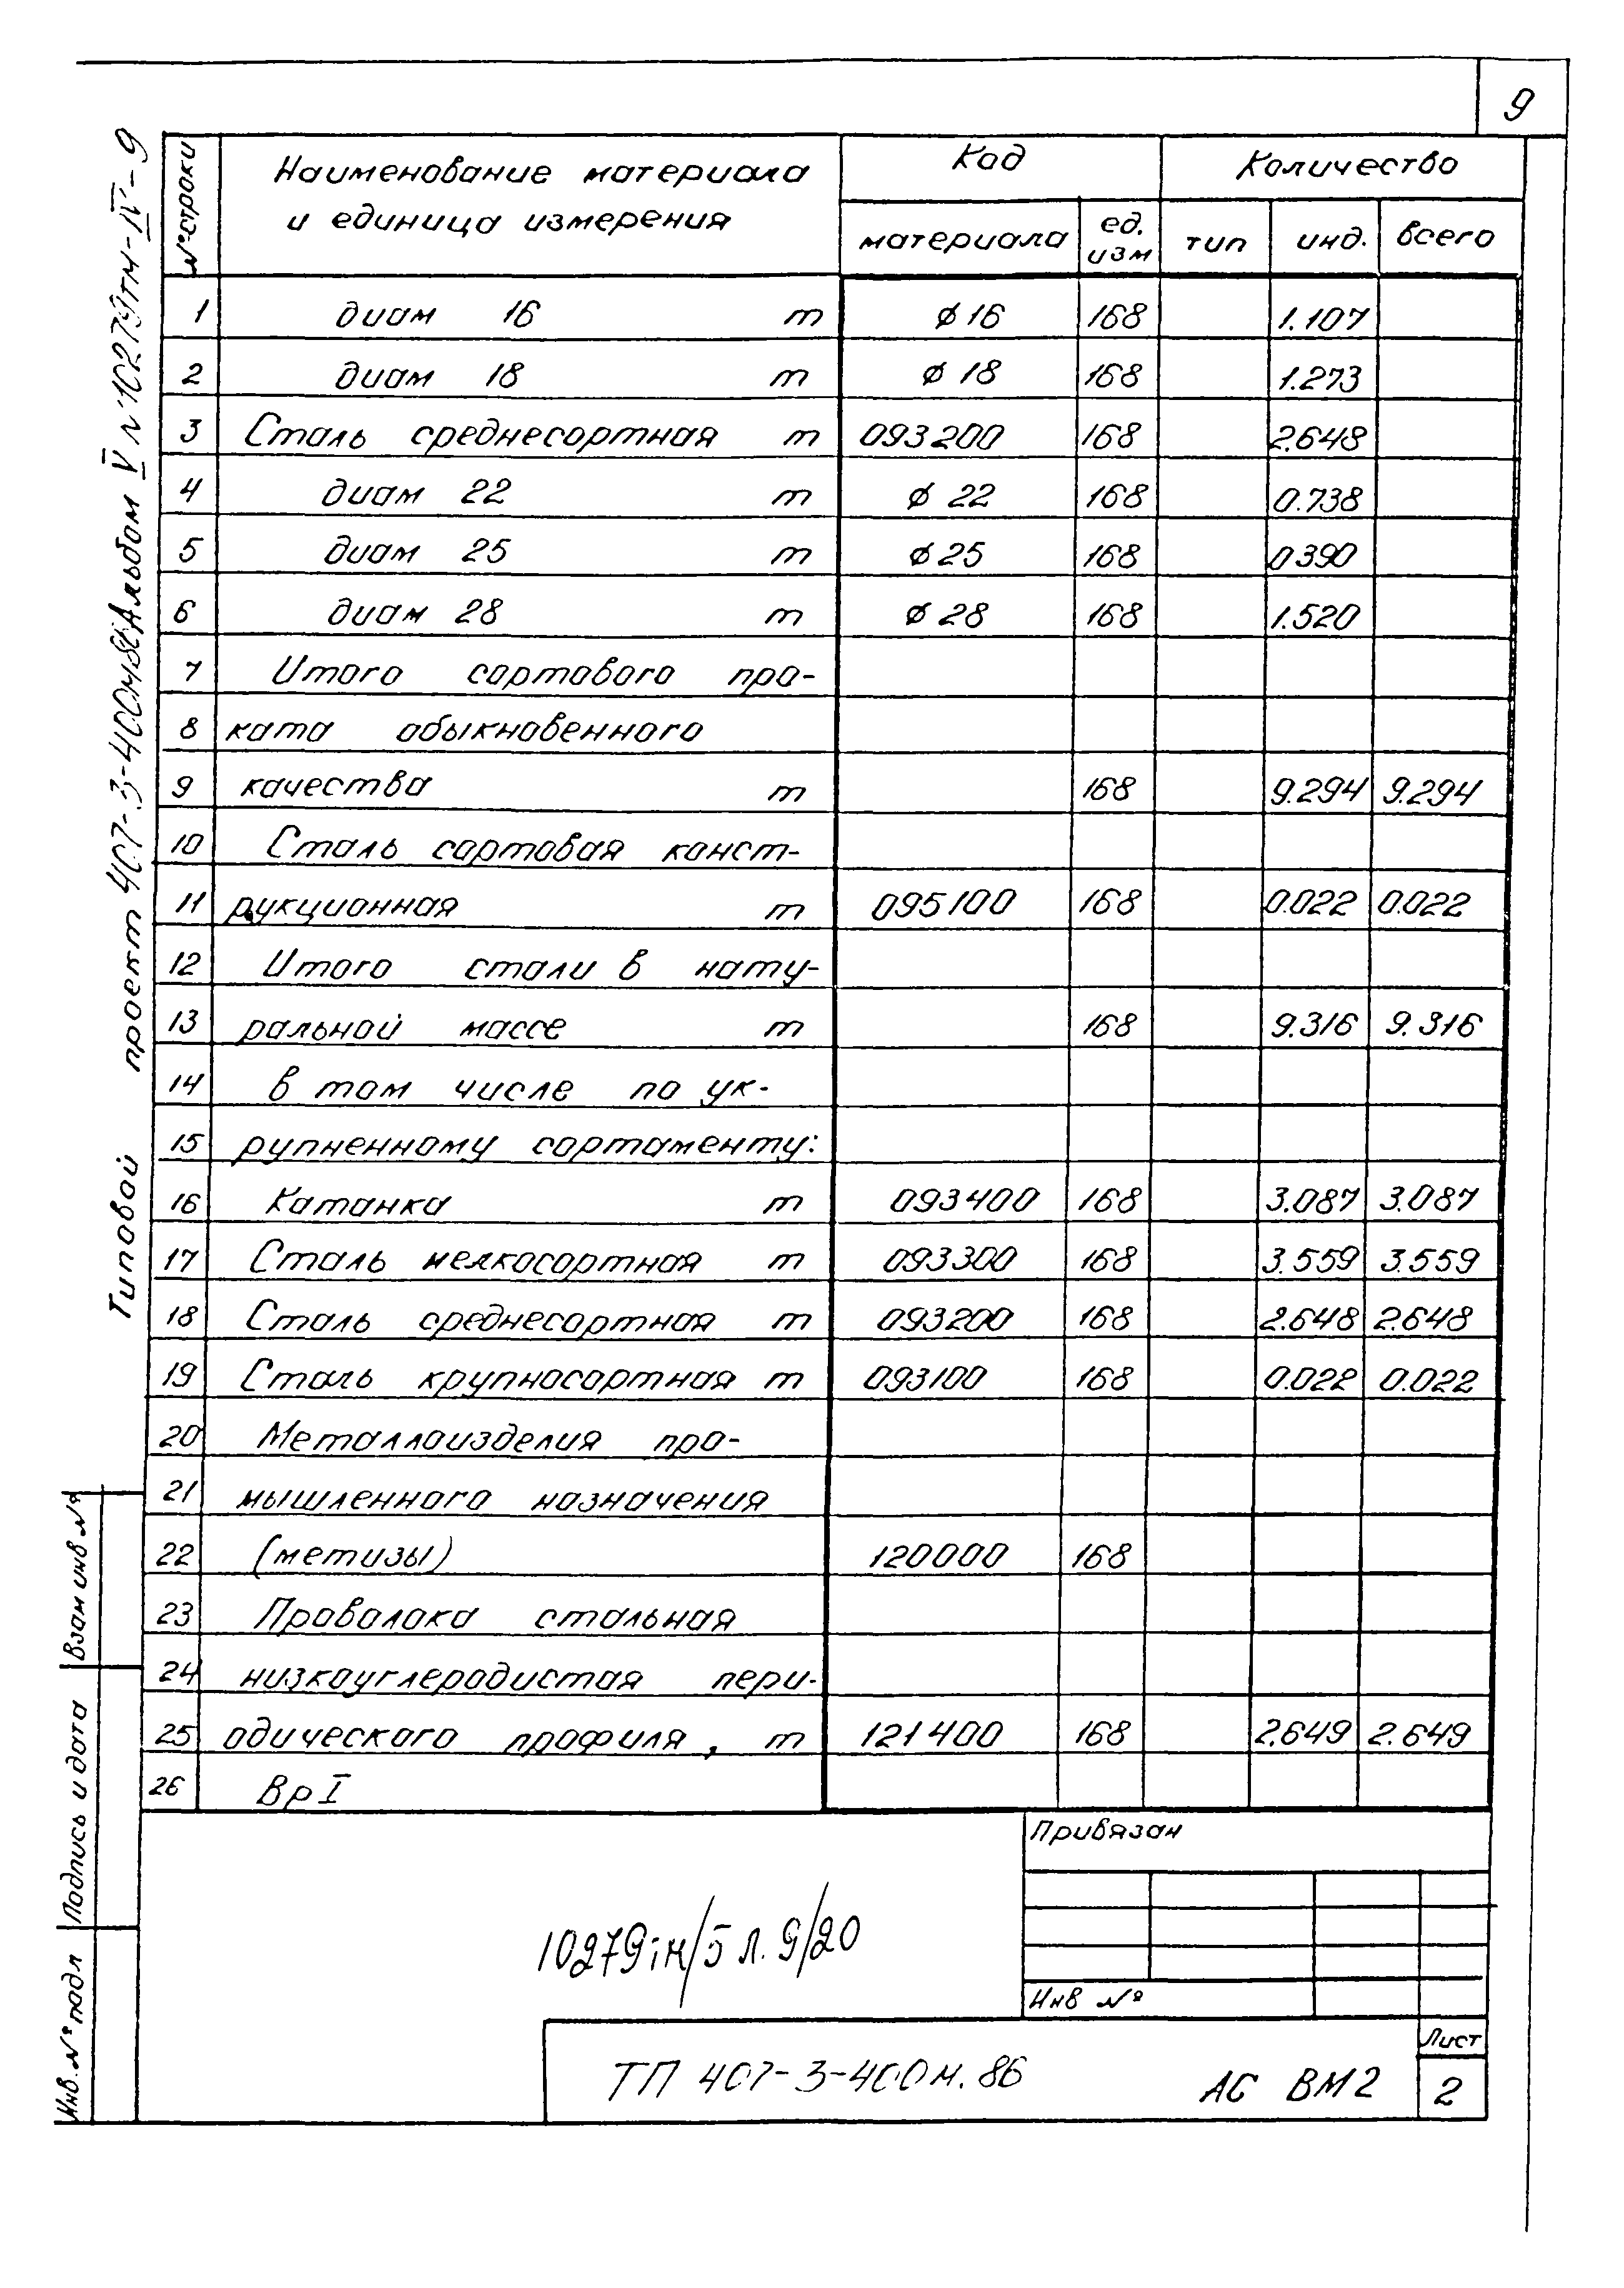 9
Типовой проект 407-3-400м86 Альбом V №10279тм-IV-9
№ строки | Наименование материала и единица измерения | Код | Количество
материала | ед. изм | тип | инд. | всего
1 диам 16 т ø16 168 1.107
2 диам 18 т ø 18 168 1.273
3 Сталь среднесортная т 093200 168 2.648
4 диам 22 т ø 22 168 0.738
5 диам 25 т ø25 168 0390
6 диам 28 т ø 28 168 1.520
7 Итого сортового про-
8 ката обыкновенного
9 качества т 168 9.294 9.294
10 Сталь сортовая конст-
11 рукционная т 095100 168 0.022 0.022
12 Итого стали в нату-
13 ральной массе т 168 9.316 9.316
14 в том числе по ук-
15 рупненному сортаменту:
16 Катанка т 093400 168 3.087 3.087
17 Сталь мелкосортная т 093300 168 3.559 3.559
18 Сталь среднесортная т 093200 168 2.648 2.648
19 Сталь крупносортная т 093100 168 0.022 0.022
20 Металлоизделия про-
21 мышленного назначения
22 (метизы) 120000 168
23 Проволока стальная
24 низкоуглеродистая пери-
25 одического профиля, т 121400 168 2.649 2.649
26 Вр I
Взам инв №
Подпись и дата
Инв. № подл
Привязан
Инв №
10279тм/5 л. 9/20
ТП 407-3-400м.86 АС ВМ2
Лист
2